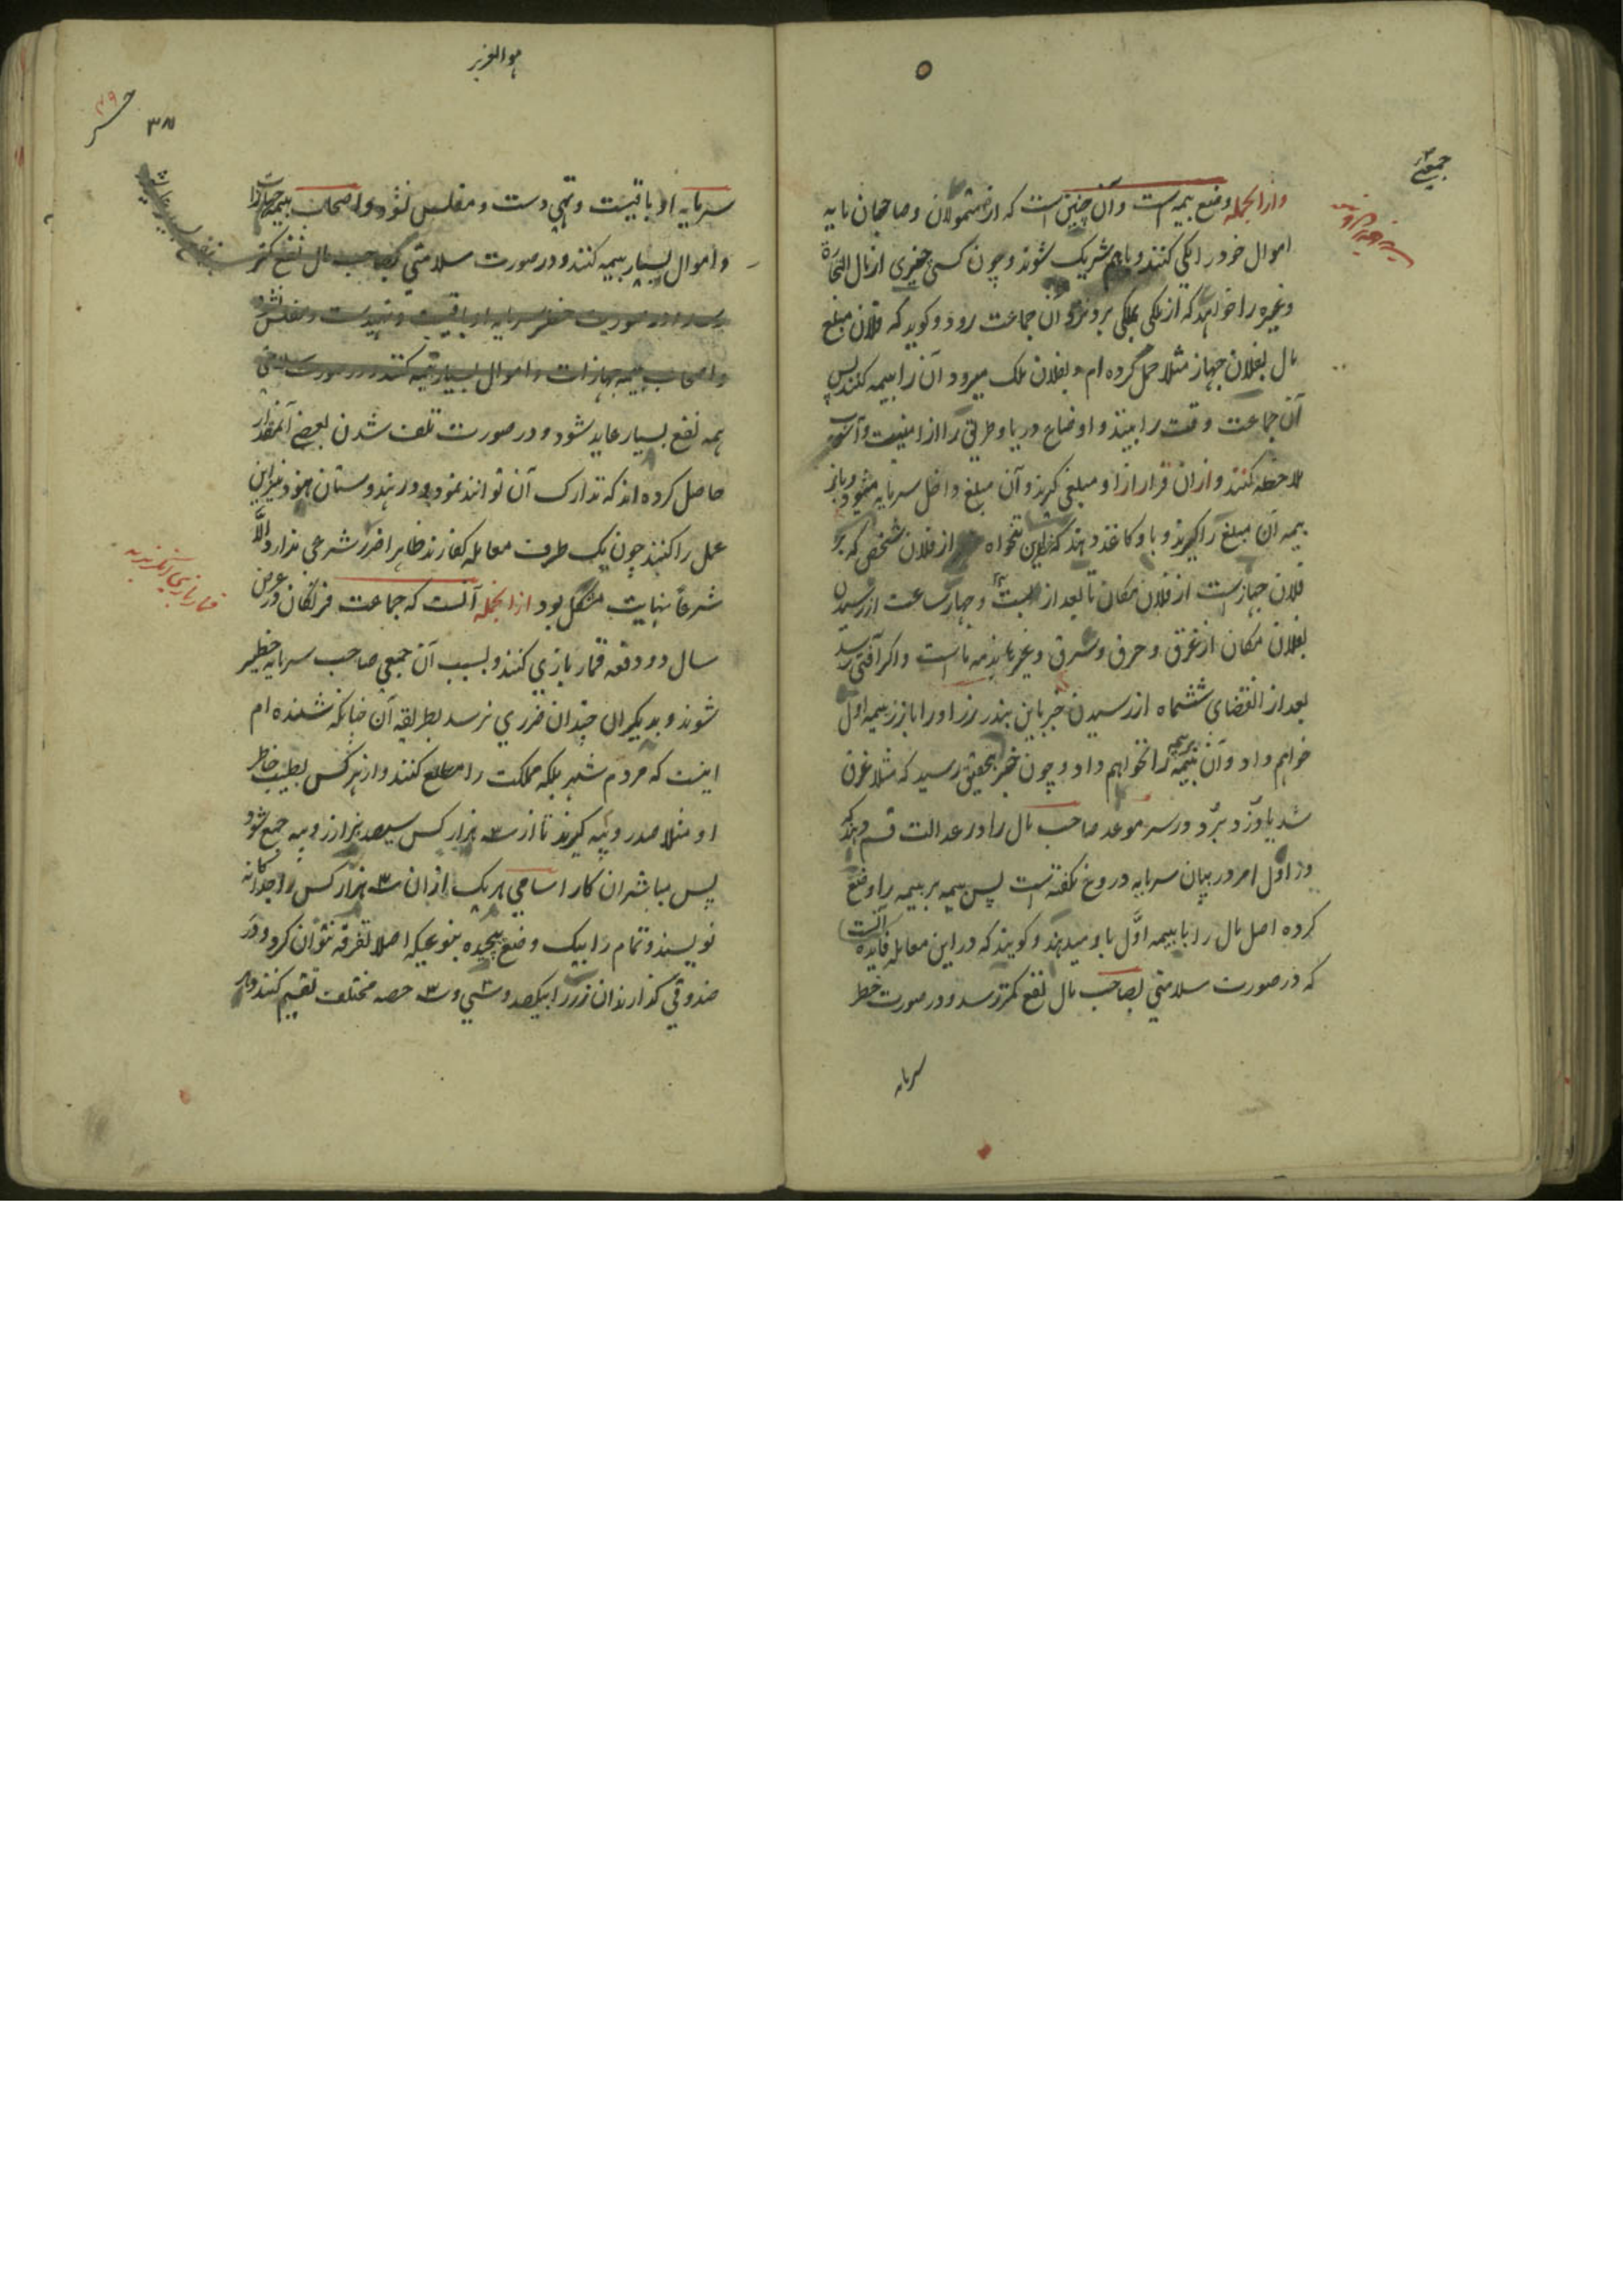 جمعی
وازانجمله وضع بیمه است و آن چنین است که از متمولان و صاحبان مایه
اموال خود را یکی کنند و باهم شریک شوند و چون کسی چیزی از مال التجارة
و غیره را خواهد که از ملکی بملکی برد نزد آن جماعت رود و کوید که فلان مبلغ
مال بفلان جهاز مثلا حمل کرده ام و بفلان ملک میرود آن را بیمه کنند پس
آن جماعت وقت را بینند و اوضاع دریا و طرق را از امنیت و آشوب
ملاحظه کنند و ازان قرار ازو مبلغی کیرند و آن مبلغ داخل سرمایه میشود و باز
بیمه آن مبلغ را کیرند و باو کاغذ دهند که این تنخواه از فلان شخص که بر
فلان جهازست از فلان مکان تا بعد از بیست و چهار ساعت از رسیدن
بفلان مکان از غرق و حرق و سرق و غیرها بذمه ماست و اکر آفتی رسد
بعد از انقضای ششماه از رسیدن خبر باین بندر زر او را با زر بیمه اول
خواهم داد و آن بیمه را نخواهم داد و چون خبر بتحقیق رسید که مثلا غرق
شد یا دزد برد و در سر موعد صاحب مال را در عدالت قسم دهند که
در اول امر در بیان سرمایه دروغ نکفته است پس بیمه بر بیمه را وضع
کرده اصل مال را با بیمه اول باو میدهند و کویند که در این معامله فایده آنست
که در صورت سلامتی بصاحب مال نفع کمتر رسد و در صورت خطر
سرمایه
هو العزیز
۳۸
۳۹
سرمایه او باقیست و تهی دست و مفلس نشود و اصحاب بیمه جهازات
و اموال بسیار بیمه کنند و در صورت سلامتی بصاحب مال نفع کمتر
رسد و در صورت خطر سرمایه او باقیست و تهیدست و مفلس نشود
و اصحاب بیمه جهازات و اموال بسیار بیمه کنند و در صورت سلامتی
همه نفع بسیار عاید شود و در صورت تلف شدن بعضی آنقدر
حاصل کرده اند که تدارک آن توانند نمود و در هندوستان هنود نیز این
عمل را کنند چون یک طرف معامله کفارند ظاهرا ضرر شرعی ندارد والّا
شرعاً بنهایت مشکل بود ازانجمله آنست که جماعت فرنکان در عرض
سال دو دفعه قمار بازی کنند و بسبب آن جمعی صاحب سرمایه خطیر
شوند و بدیکران چندان ضرری نرسد بطریقه آن چنانکه شنیده ام
اینست که مردم شهر بلکه مملکت را مطلع کنند و از هر کس بطیب خاطر
او مثلا صد روپیه کیرند تا از سه هزار کس سیصد هزار روپیه جمع شود
پس مباشران کار اسامی هر یک ازان سه هزار کس را جداکانه
نویسند و تمام را بیک وضع پیچیده بنوعیکه اصلا تفرقه نتوان کرد و در
صندوقی کذارند آن زر را بیکصد و سی و سه حصه مختلف تقسیم کنند و بر
قمار بازی انکریزیه